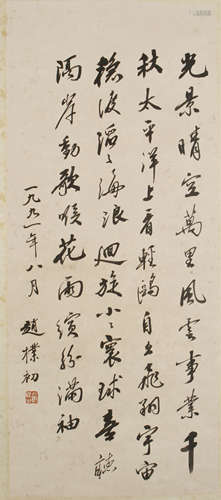 光景晴空萬里風雲事業千
秋太平洋上看輕鷗自由飛翔宇宙
穩渡滔〻海浪迴旋小〻寰球喜聽
隔岸動歌喉花雨繽紛滿袖
一九九一年八月 趙樸初